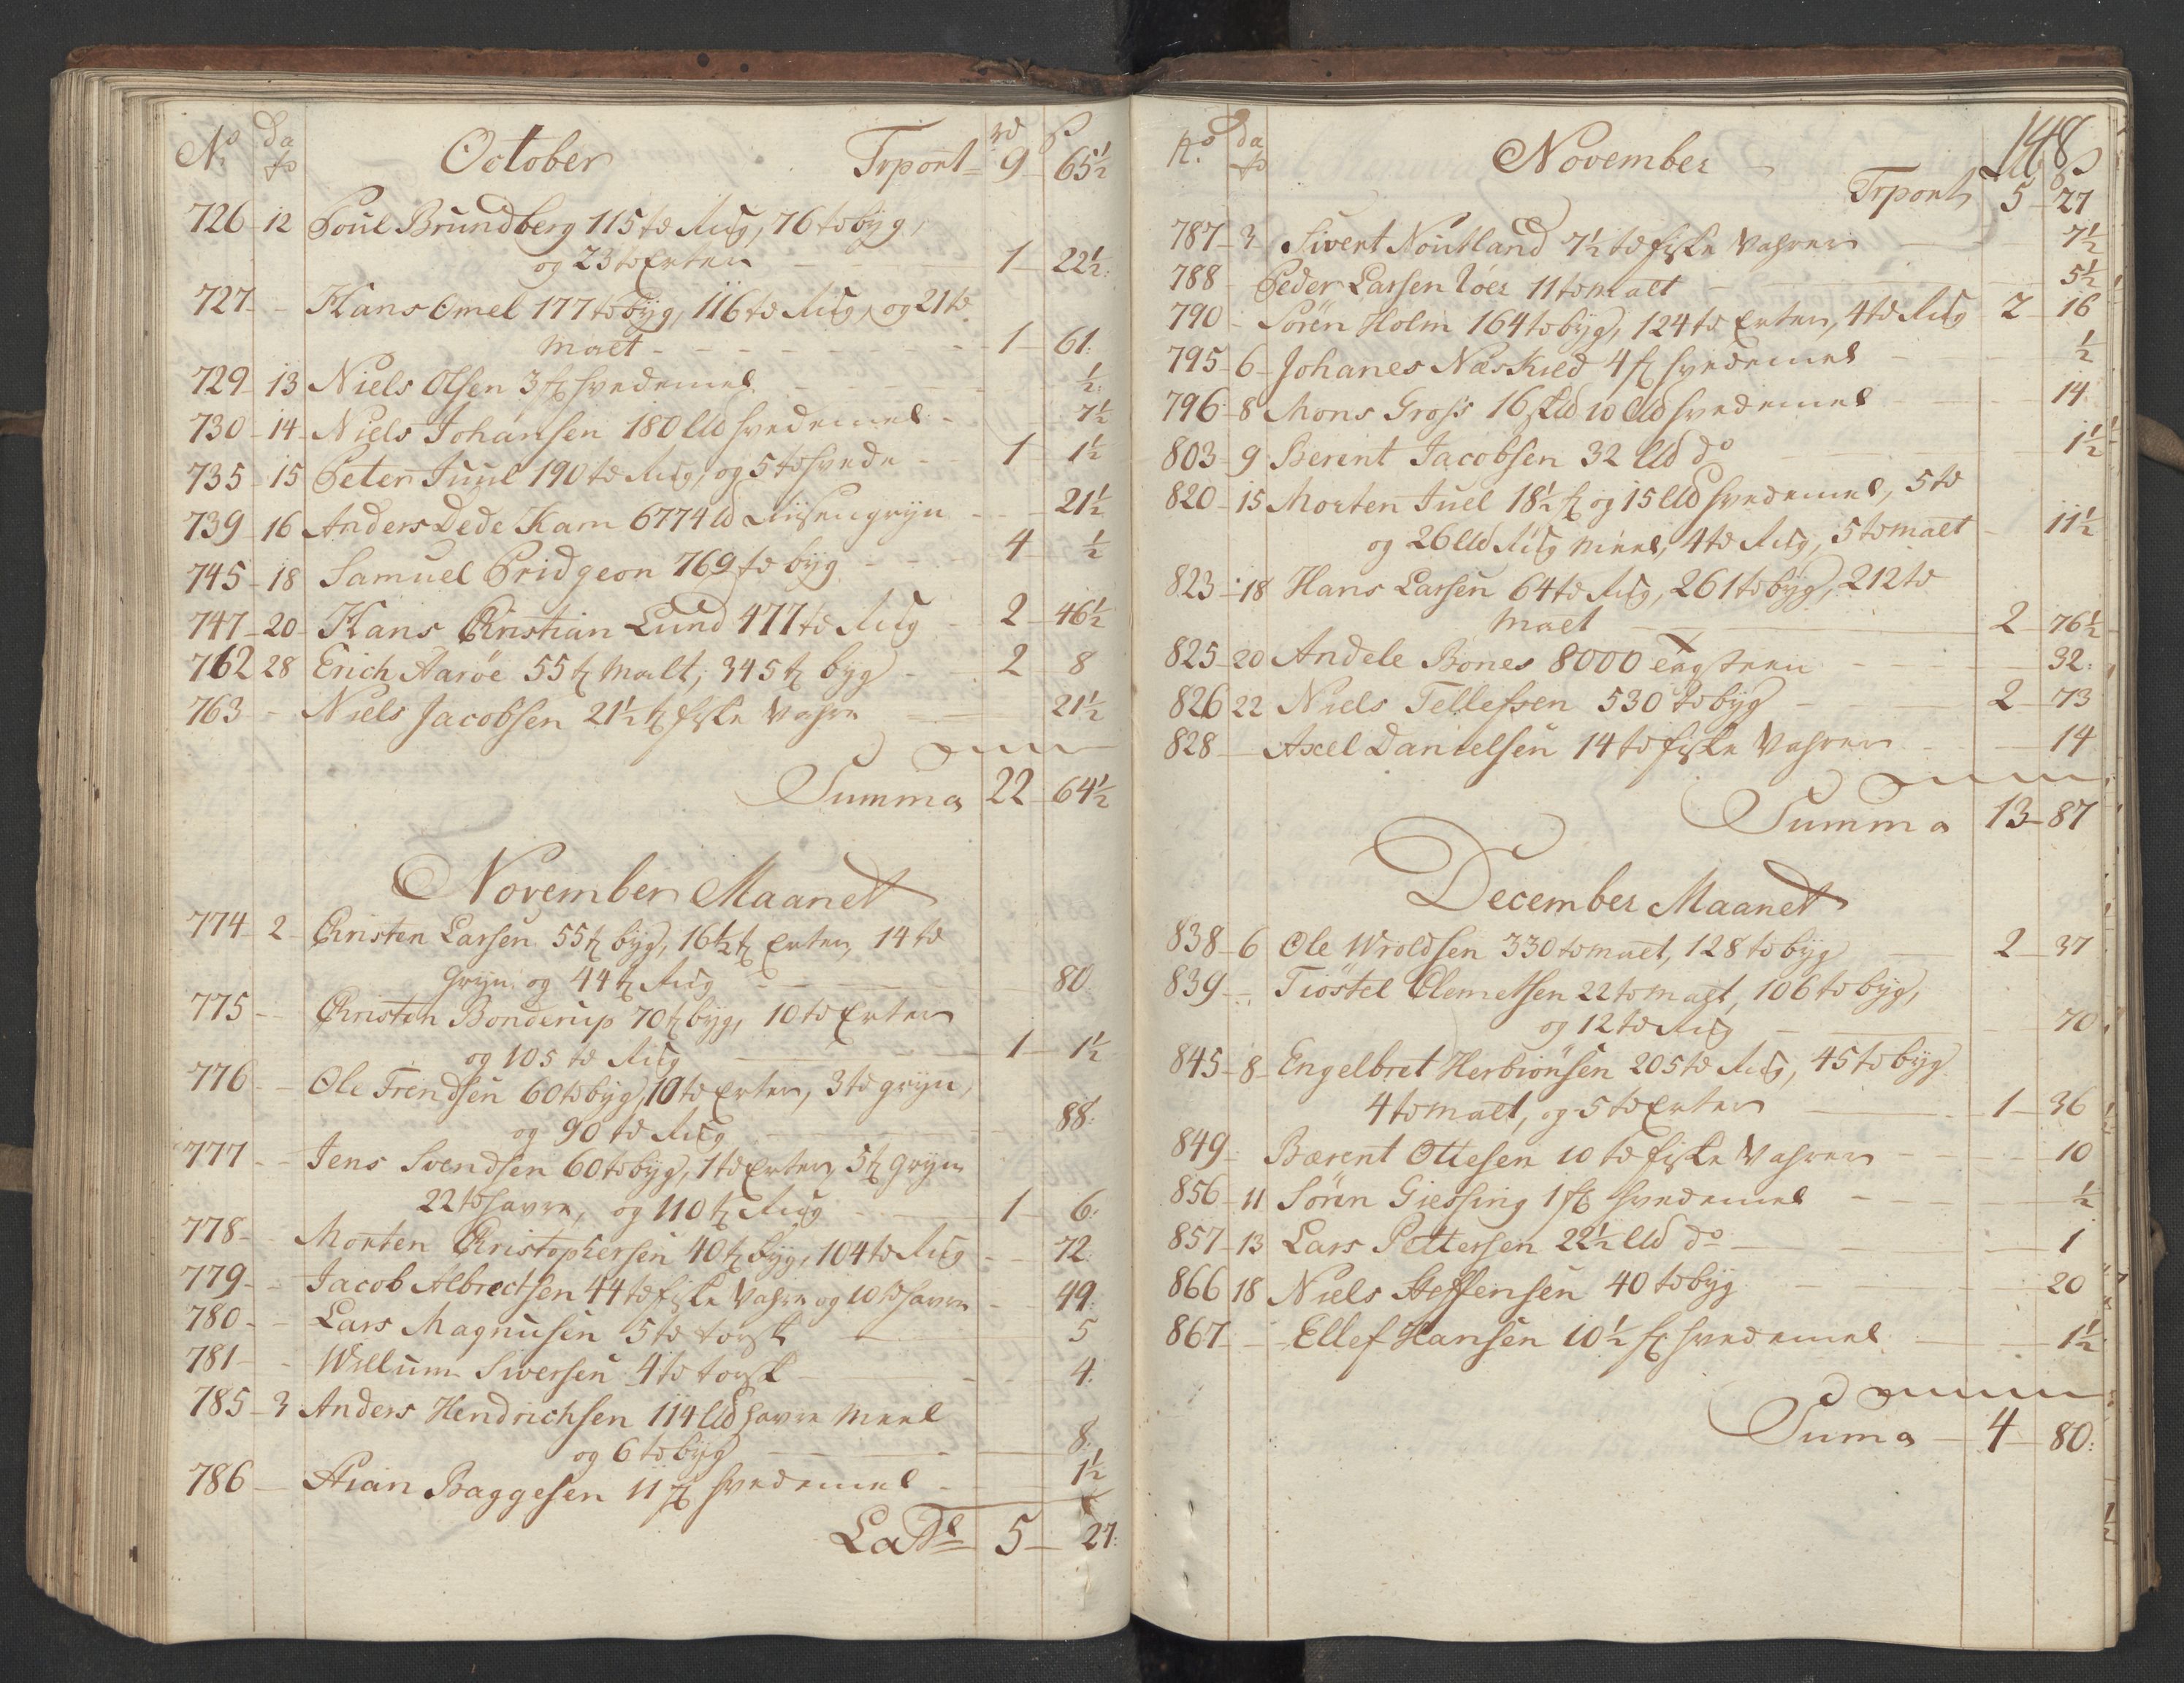 No da to October Trport rd 9 ß 65½
726 12 Poul Brundberg 115 td Rug, 76 td byg,
og 23 td Erter 1 22½
727 - Hans Omel 177 td byg, 116 td Rug, og 21 td
Malt 1 61
729 13 Niels Olsen 3 hvedemel ½
730 14 Niels Johansen 180 lld hvedemel 7½
735 15 Peter Juul 190 td Rug, og 5 td hvede 1 1½
739 16 Anders Dedekam 6774 lb Risengryn 21½
745 18 Samuel Pridgeon 769 td byg 4 ½
747 20 Hans Christian Lund 477 td Rug 2 46½
762 28 Erich Aarøe 55 t Malt, 345 t byg 2 8
763 - Niels Jacobsen 21½ t fiske Vahre 21½
Summa 22 64½
November Maanet
774 2 Christen Larsen 55 t byg, 16½ t Erter, 14 td
Gryn og 44 t Rug 80
775 - Christen Bonderup 70 t byg, 10 td Erter
og 105 td Rug 1 1½
776 - Ole Trendsen 60 td byg, 10 td Erter, 3 td gryn,
og 90 td Rug 88
777 - Jens Svendsen 60 td byg, 1 td Erter, 5 t Gryn
22 td havre, og 110 t Rug 1 6
778 - Morten Christophersen 40 t byg, 104 td Rug 72
779 - Jacob Albrectsen 44 td fiske Vahre og 10 td havre 49
780 - Lars Magnusen 5 td torsk 5
781 - Willum Swersen 4 td torsk 4
785 3 Anders Hendrichsen 114 lld havre Meel
og 6 td byg 8
786 - Baggesen 11 hvedemel 1½
5 27
No da to November 148
Trport 5 ß 27
787 3 Sivert Noutland 7½ td fiske Vahrer 7½
788 - Peder Larsen 11 td malt 5½
790 - Sören Holm 164 td byg, 124 td Erter, 4 td Rug 2 16
795 6 Johanes Næskied 4 hvedemel ½
796 8 Mons Gross 16 10 lld hvedemel 14
803 9 Berent Jacobsen 32 lld do 1½
820 15 Morten Juel 18½ og 15 lld hvedemel, 5 td
og 26 lld Rug meel, 4 td Rug, 5 td malt 11½
823 18 Hans Larsen 64 td Rug, 261 td byg, 212 td
Malt 2 76½
825 20 Andele Bones 8000 tagsteen 32
826 22 Niels Tellefsen 530 td byg 2 73
828 - Axel Danielsen 14 td fiske Vahrer 14
Summa 13 87
December Maanet
838 6 Ole Wroldsen 330 td malt, 128 td byg 2 37
839 - Tiöstel Clemetsen 22 td malt, 106 td byg,
og 12 td Rug 70
845 8 Engelbret Herbiönsen 205 td Rug, 45 td byg
4 td malt, og 5 td Erter 1 36
849 - Bærent Ottesen 10 td fiske Vahrer 10
856 11 Sören Giessing 1 hvedemel ½
857 13 Lars Pettersen 22½ lld do 1
866 18 Niels Steffensen 40 td byg 20
867 - Ellef Hansen 10½ hvedemel 1½
Suma 4 80